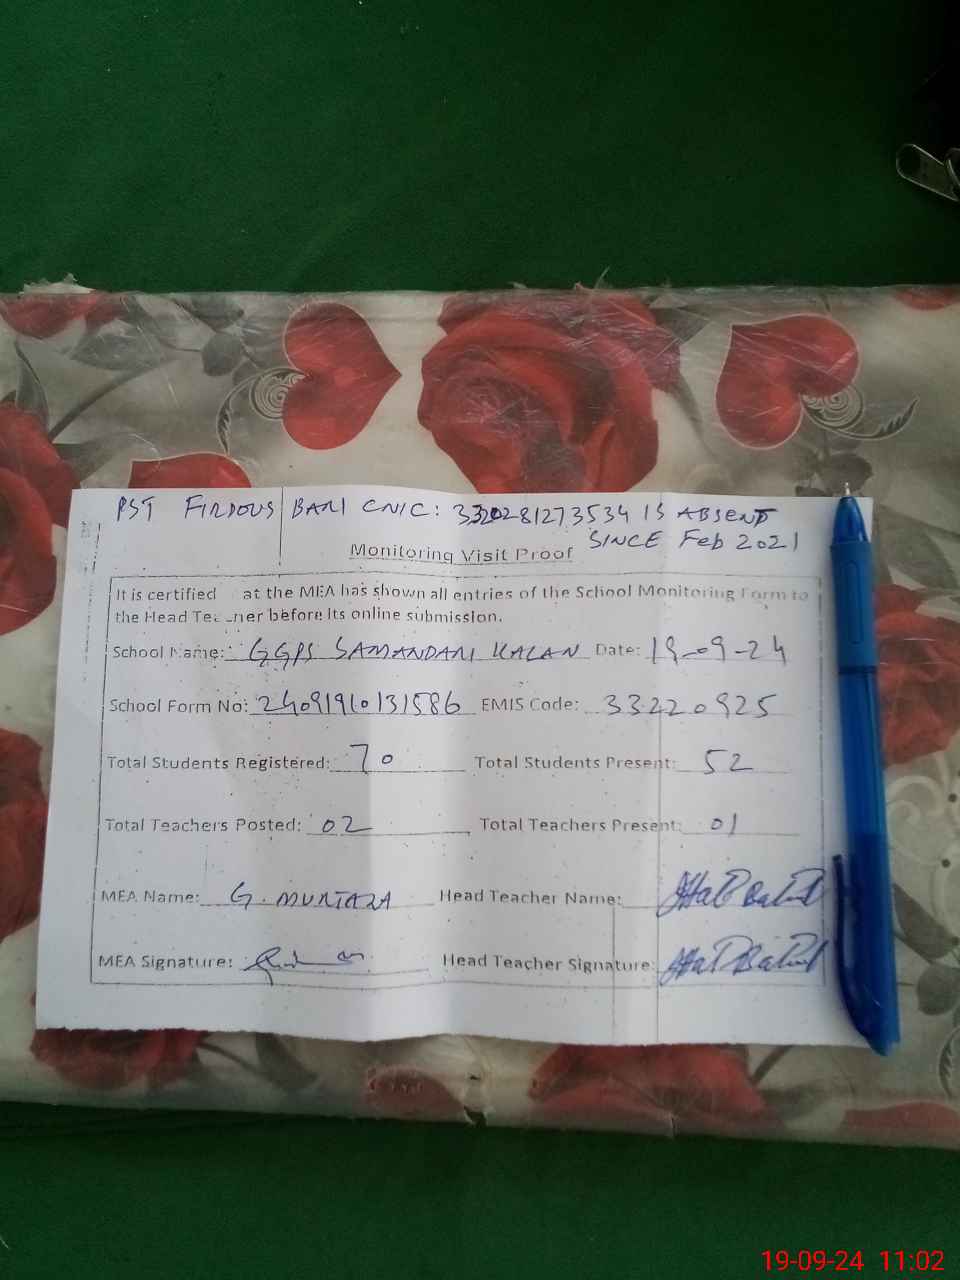 PST FIRDOUS BARI CNIC: 3320281273534 IS ABSENT
SINCE Feb 2021
Monitoring Visit Proof
It is certified at the MEA has shown all entries of the School Monitoring Form to
the Head Teacher before its online submission.
School Name: GGPS SAMANDARI KALAN Date: 19-09-24
School Form No: 24091910131586 EMIS Code: 33220925
Total Students Registered: 70 Total Students Present: 52
Total Teachers Posted: 02 Total Teachers Present: 01
MEA Name: G. MURTAZA Head Teacher Name:
MEA Signature: Head Teacher Signature:
19-09-24 11:02